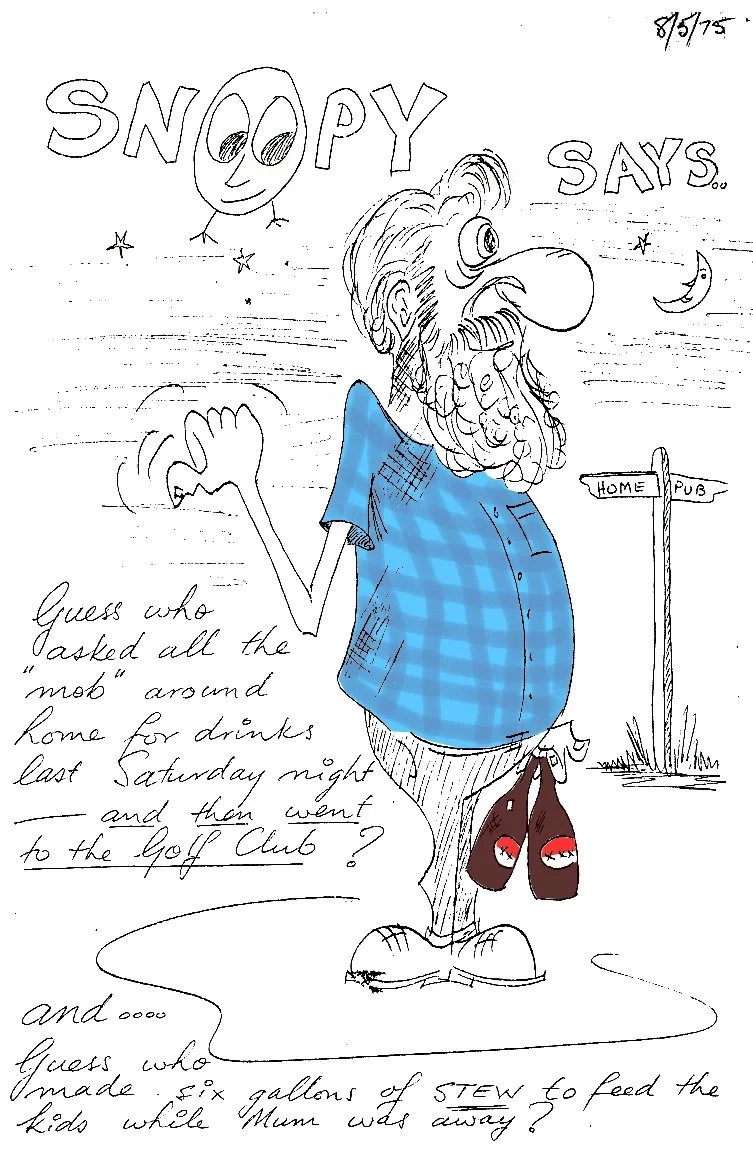 8/5/75
SNOOPY SAYS..
HOME PUB
Guess who
asked all the
"mob" around
home for drinks
last Saturday night
— and then went
to the Golf Club ?
XX XXX
and....
Guess who
made six gallons of STEW to feed the
kids while Mum was away?